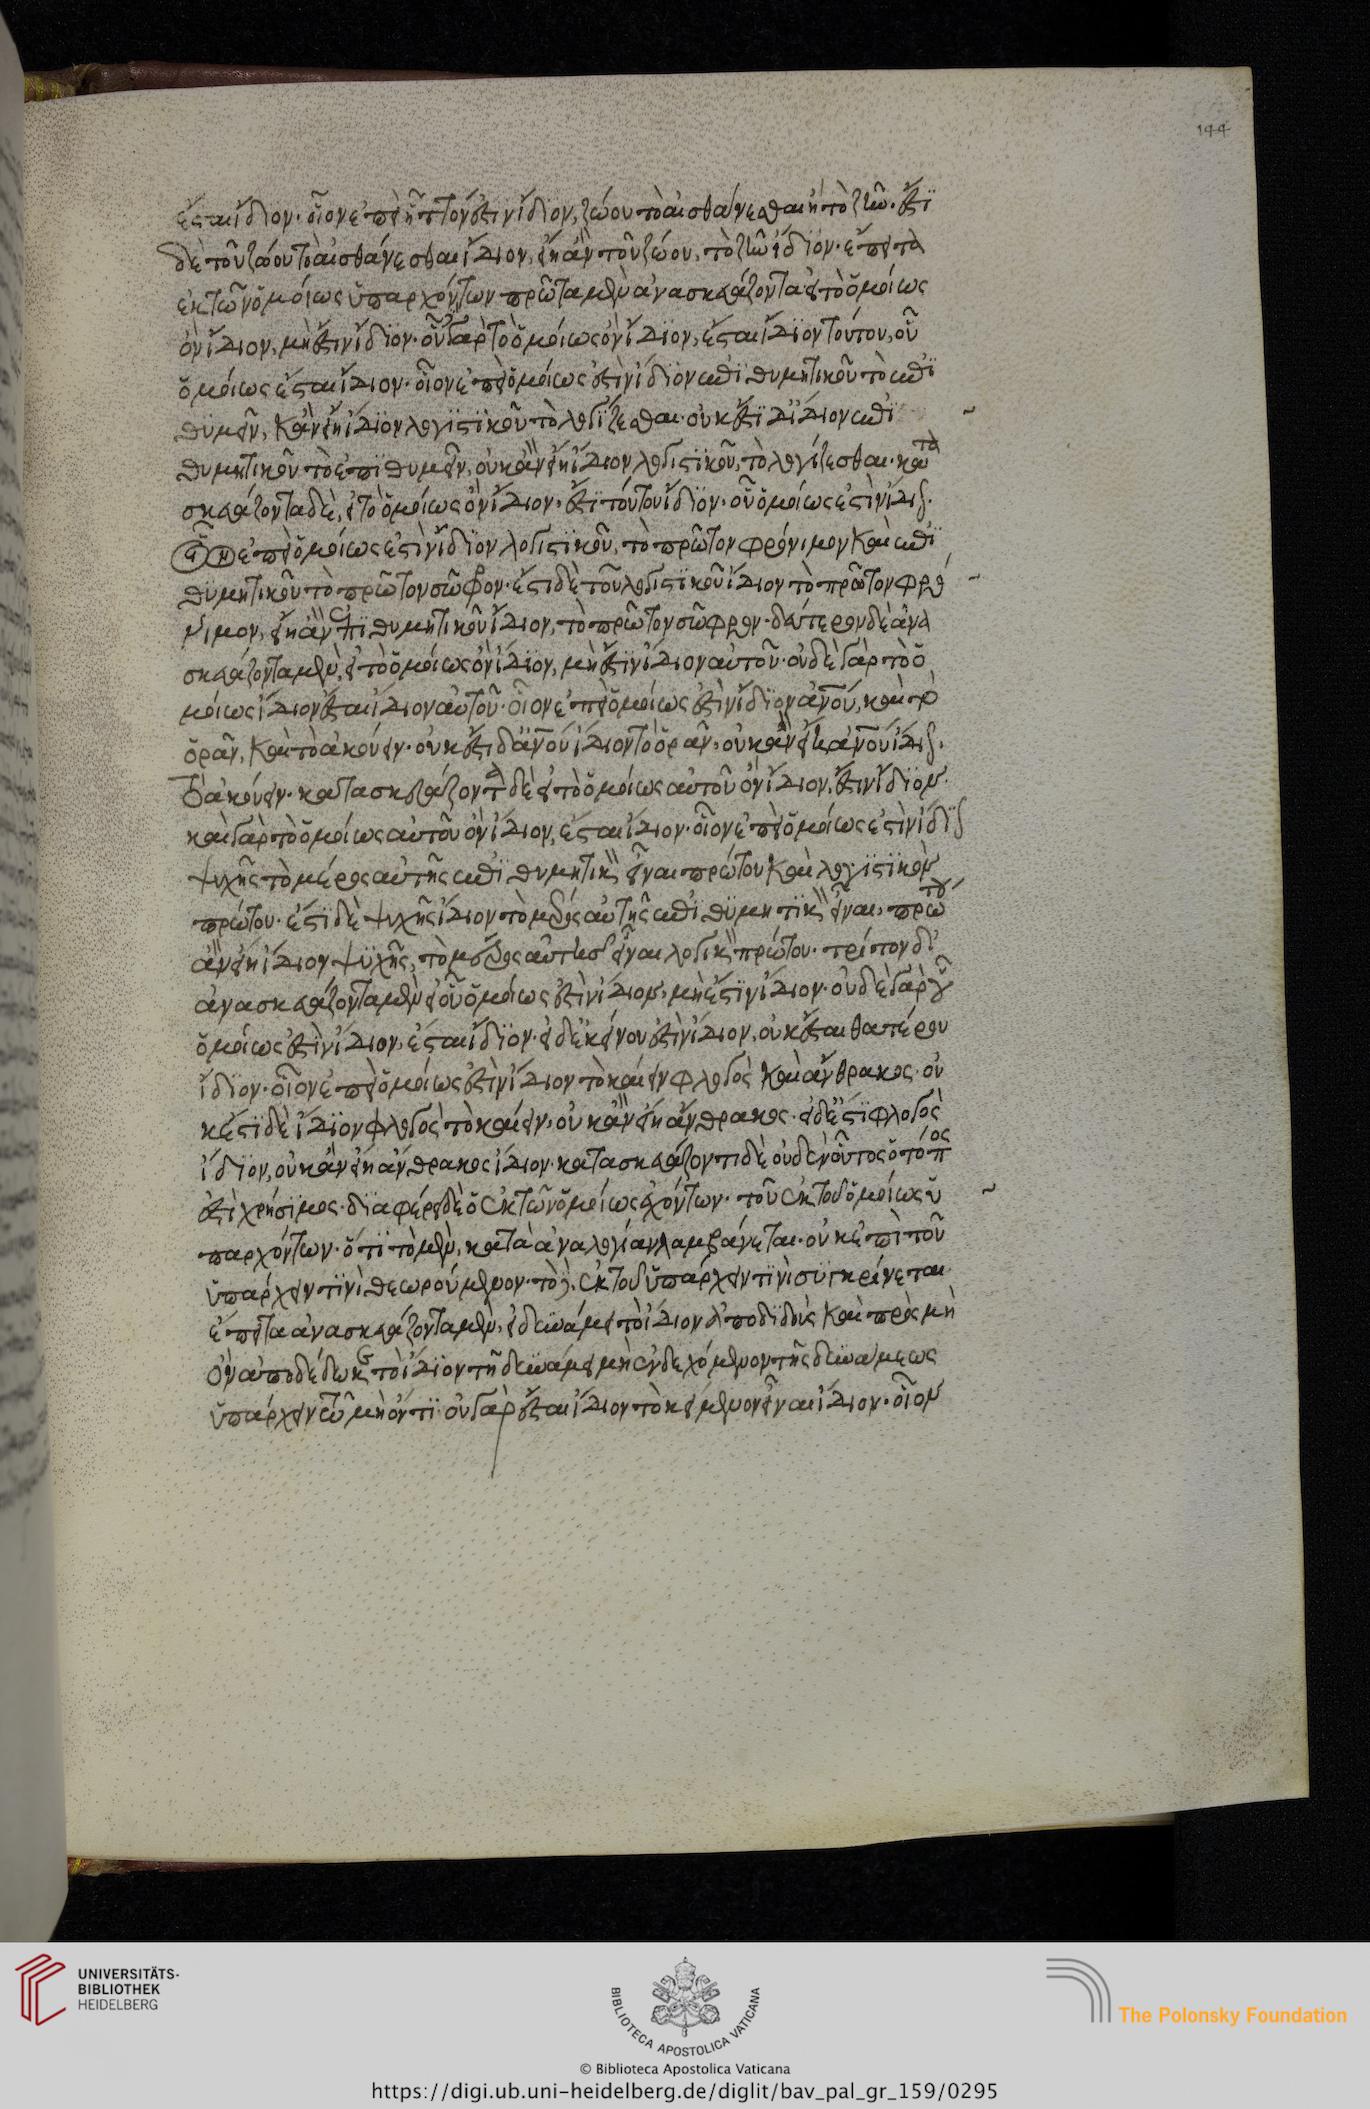 ἔσται ἴδιον· οἷον ἐπεὶ ἧττόν ἐστιν ἴδιον, ζώου τὸ αἰσθάνεσθαι ἢ τὸ ζῆν· ἔστι
δὲ τοῦ ζώου τὸ αἰσθάνεσθαι ἴδιον, εἴη ἂν τοῦ ζώου, τὸ ζῆν ἴδιον· ἔπειτα
ἐκ τῶν ὁμοίως ὑπαρχόντων πρῶτα μὲν ἀνασκευάζοντα εἰ τὸ ὁμοίως
ὂν ἴδιον, μὴ ἔστιν ἴδιον· οὐ γὰρ τὸ ὁμοίως ὂν ἴδιον, ἔσται ἴδιον τούτου, οὐ
ὁμοίως ἔσται ἴδιον· οἷον ἐπεὶ ὁμοίως ἐστὶν ἴδιον ἐπιθυμητικοῦ τὸ ἐπι
θυμεῖν, καὶ ἴδιον λογιστικοῦ τὸ λογίζεσθαι· οὐκ ἔστι δ' ἴδιον ἐπι
θυμητικοῦ τὸ ἐπιθυμεῖν, οὐκ ἂν εἴη ἴδιον λογιστικοῦ, τὸ λογίζεσθαι· κατα
σκευάζοντα δὲ, εἰ τὸ ὁμοίως ὂν ἴδιον· ἔστι τούτου ἴδιον· οὗ ὁμοίως ἐστὶν ἴδιον·
οἷον ἐπεὶ ὁμοίως ἐστὶν ἴδιον λογιστικοῦ, τὸ πρῶτον φρόνιμον καὶ ἐπι
θυμητικοῦ τὸ πρῶτον σῶφρον· ἔστι δὲ τοῦ λογιστικοῦ ἴδιον τὸ πρῶτον φρό
νιμον, εἴη ἂν ἐπιθυμητικοῦ ἴδιον, τὸ πρῶτον σῶφρον· δεύτερον δὲ ἀνα
σκευάζοντα μὲν, εἰ τὸ ὁμοίως ὂν ἴδιον, μὴ ἔστιν ἴδιον αὐτοῦ· οὐδὲ γὰρ τὸ ὁ
μοίως ἴδιον ἔσται ἴδιον αὐτοῦ· οἷον ἐπεὶ ὁμοίως ἐστὶν ἴδιον ἀνου, καὶ τὸ
ὁρᾶν, καὶ τὸ ἀκούειν· οὐκ ἔστι δ' ἀνου ἴδιον τὸ ὁρᾶν, οὐκ ἂν εἴη ἀνου ἴδιον
τὸ ἀκούειν· κατασκευάζοντα δὲ εἰ τὸ ὁμοίως αὐτοῦ ὂν ἴδιον, ἔστιν ἴδιον·
καὶ γὰρ τὸ ὁμοίως αὐτοῦ ὂν ἴδιον, ἔσται ἴδιον· οἷον ἐπεὶ ὁμοίως ἐστὶν ἴδιον
ψυχῆς τὸ μέρος αὐτῆς ἐπιθυμητικὸν εἶναι πρώτου καὶ λογιστικὸν
πρώτου· ἔστι δὲ ψυχῆς ἴδιον τὸ μέρος αὐτῆς ἐπιθυμητικὸν εἶναι, πρώτου
ἂν εἴη ἴδιον ψυχῆς, τὸ μέρος αὐτῆς εἶναι λογικὸν πρώτου· τρίτον δ'
ἀνασκευάζοντα μὲν εἰ οὗ ὁμοίως ἐστὶν ἴδιον, μὴ ἔστιν ἴδιον· οὐδὲ γὰρ οὗ
ὁμοίως ἐστὶν ἴδιον, ἔσται ἴδιον· εἰ δ' ἐκείνου ἐστὶν ἴδιον, οὐκ ἔσται θατέρου
ἴδιον· οἷον ἐπεὶ ὁμοίως ἐστὶν ἴδιον τὸ καίειν φλογὸς καὶ ἄνθρακος· οὐ
κ ἔστι δὲ ἴδιον φλογὸς τὸ καίειν, οὐκ ἂν εἴη ἄνθρακος· εἰ δ' ἔστι φλογὸς
ἴδιον, οὐκ ἂν εἴη ἄνθρακος ἴδιον· κατασκευάζοντι δὲ οὐδὲν οὗτος ὁ τόπος
ἐστὶ χρήσιμος· διαφέρει δὲ ὁ ἐκ τῶν ὁμοίως ἐχόντων· τοῦ ἐκ τῶν ὁμοίως ὑ
παρχόντων· ὅτι τὸ μὲν, κατὰ ἀναλογίαν λαμβάνεται· οὐκ ἐπὶ τοῦ
ὑπάρχειν τινὶ θεωρούμενον· τὸ δὲ, ἐκ τοῦ ὑπάρχειν τινὶ συγκρίνεται·
ἔπειτα ἀνασκευάζοντα μὲν, εἰ δυνάμει τὸ ἴδιον ἀποδιδοὺς καὶ πρὸς μὴ
ὂν ἀποδέδωκε τὸ ἴδιον τῇ δυνάμει μὴ ἐνδεχόμενον τῆς δυνάμεως
ὑπάρχειν τῶ μὴ ὄντι οὐ γὰρ ἔσται ἴδιον τὸ κείμενον εἶναι ἴδιον· οἷον
144
UNIVERSITÄTS-
BIBLIOTHEK
HEIDELBERG
BIBLIOTECA APOSTOLICA VATICANA
The Polonsky Foundation
© Biblioteca Apostolica Vaticana
https://digi.ub.uni-heidelberg.de/diglit/bav_pal_gr_159/0295